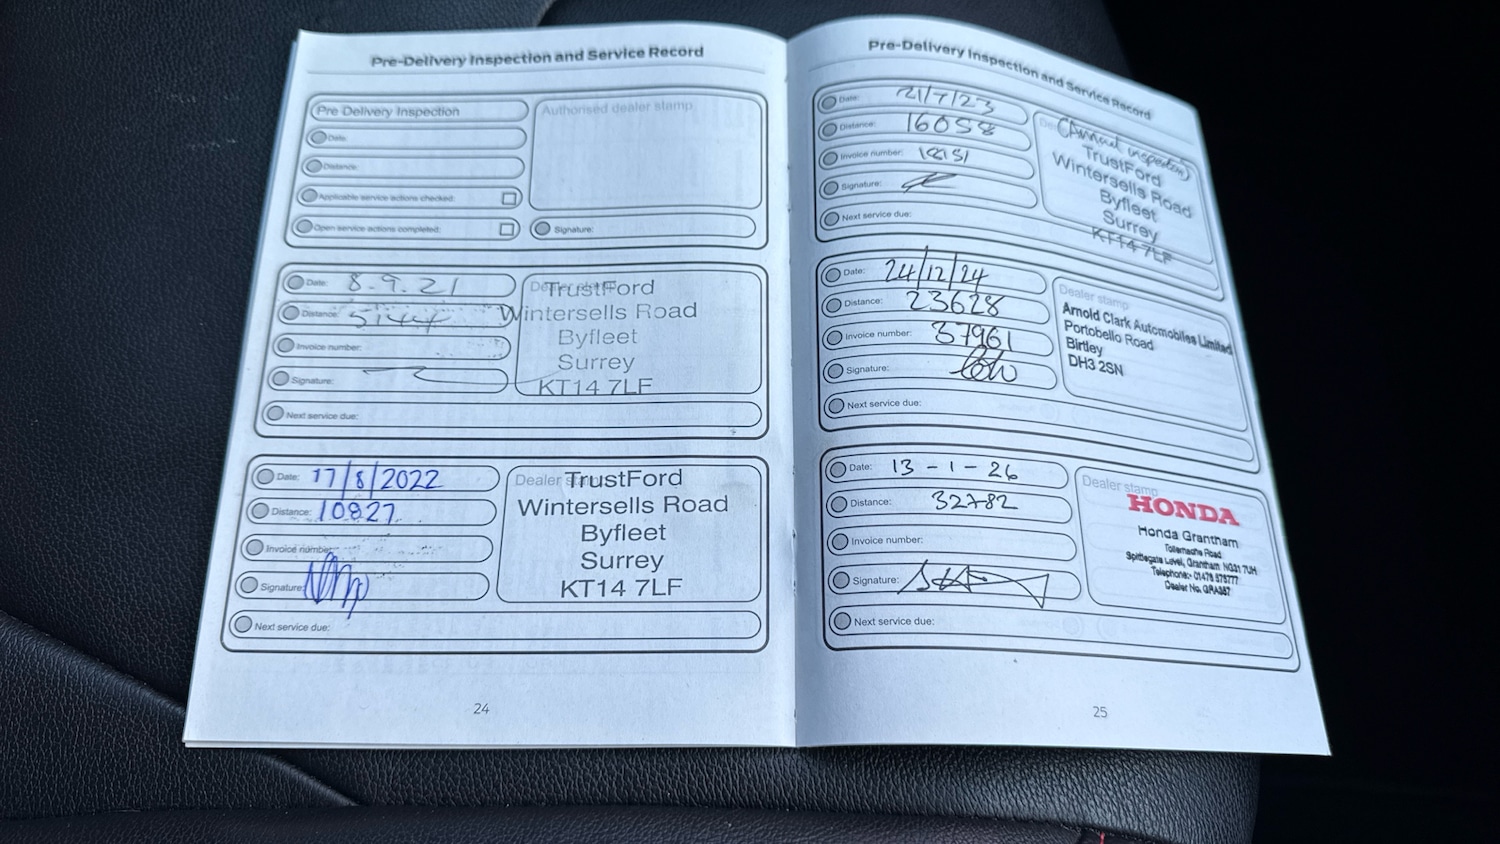 Pre-Delivery Inspection and Service Record
Pre Delivery Inspection
Date:
Distance:
Applicable service actions checked:
Open service actions completed:
Authorised dealer stamp
Signature:
Date: 8.9.21
Distance: 5144
Invoice number:
Signature:
Next service due:
Dealer stamp
TrustFord
Wintersells Road
Byfleet
Surrey
KT14 7LF
Date: 17/8/2022
Distance: 10827
Invoice number:
Signature:
Next service due:
Dealer stamp
TrustFord
Wintersells Road
Byfleet
Surrey
KT14 7LF
24
Pre-Delivery Inspection and Service Record
Date: 21/7/23
Distance: 16058
Invoice number: 18151
Signature:
Next service due:
(Annual inspection)
TrustFord
Wintersells Road
Byfleet
Surrey
KT14 7LF
Date: 24/12/24
Distance: 23628
Invoice number: 37961
Signature:
Next service due:
Dealer stamp
Arnold Clark Automobiles Limited
Portobello Road
Birtley
DH3 2SN
Date: 13-1-26
Distance: 32782
Invoice number:
Signature:
Next service due:
Dealer stamp
HONDA
Honda Grantham
Tollemache Road
Spittlegate Level, Grantham NG31 7UH
Telephone:- 01476 575777
Dealer No. GRA387
25